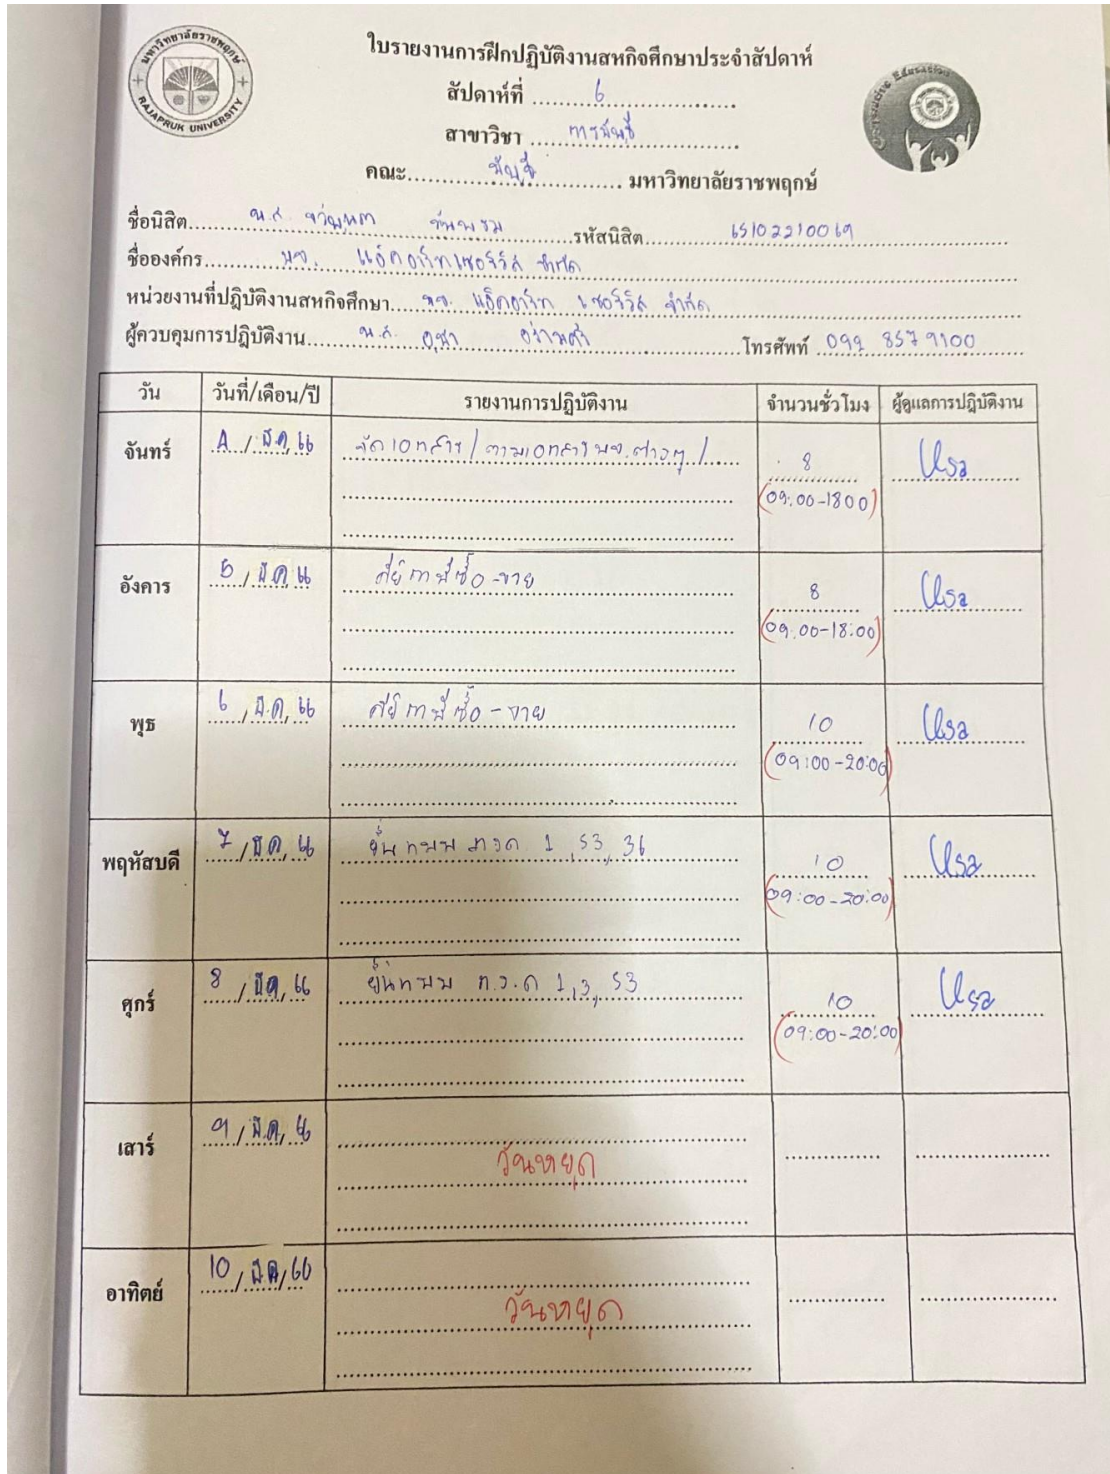 มหาวิทยาลัยราชพฤกษ์
RAJAPRUK UNIVERSITY
ใบรายงานการฝึกปฏิบัติงานสหกิจศึกษาประจำสัปดาห์
สัปดาห์ที่ 6
สาขาวิชา การบัญชี
คณะ บัญชี มหาวิทยาลัยราชพฤกษ์
ชื่อนิสิต น.ส. รหัสนิสิต 65102210069
ชื่อองค์กร บจ. จำกัด
หน่วยงานที่ปฏิบัติงานสหกิจศึกษา บจ. จำกัด
ผู้ควบคุมการปฏิบัติงาน น.ส. โทรศัพท์ 092 8579100
วัน วันที่/เดือน/ปี รายงานการปฏิบัติงาน จำนวนชั่วโมง ผู้ดูแลการปฏิบัติงาน
จันทร์ 4 / ธ.ค. 66 จัดเอกสาร / ตามเอกสาร บจ. ต่างๆ / 8 Usa
(09:00-1800)
อังคาร 5 / ธ.ค. 66 คีย์ภาษีซื้อ-ขาย 8 Usa
(09.00-18:00)
พุธ 6 / ธ.ค. 66 คีย์ภาษีซื้อ-ขาย 10 Usa
(09:00-20:00)
พฤหัสบดี 7 / ธ.ค. 66 ยื่นแบบ ภงด 1, 53, 36 10 Usa
(09:00-20:00)
ศุกร์ 8 / ธ.ค. 66 ยื่นแบบ ภ.ง.ด 1,3, 53 10 Usa
(09:00-20:00)
เสาร์ 9 / ธ.ค. 66
วันหยุด
อาทิตย์ 10 / ธ.ค. 66
วันหยุด